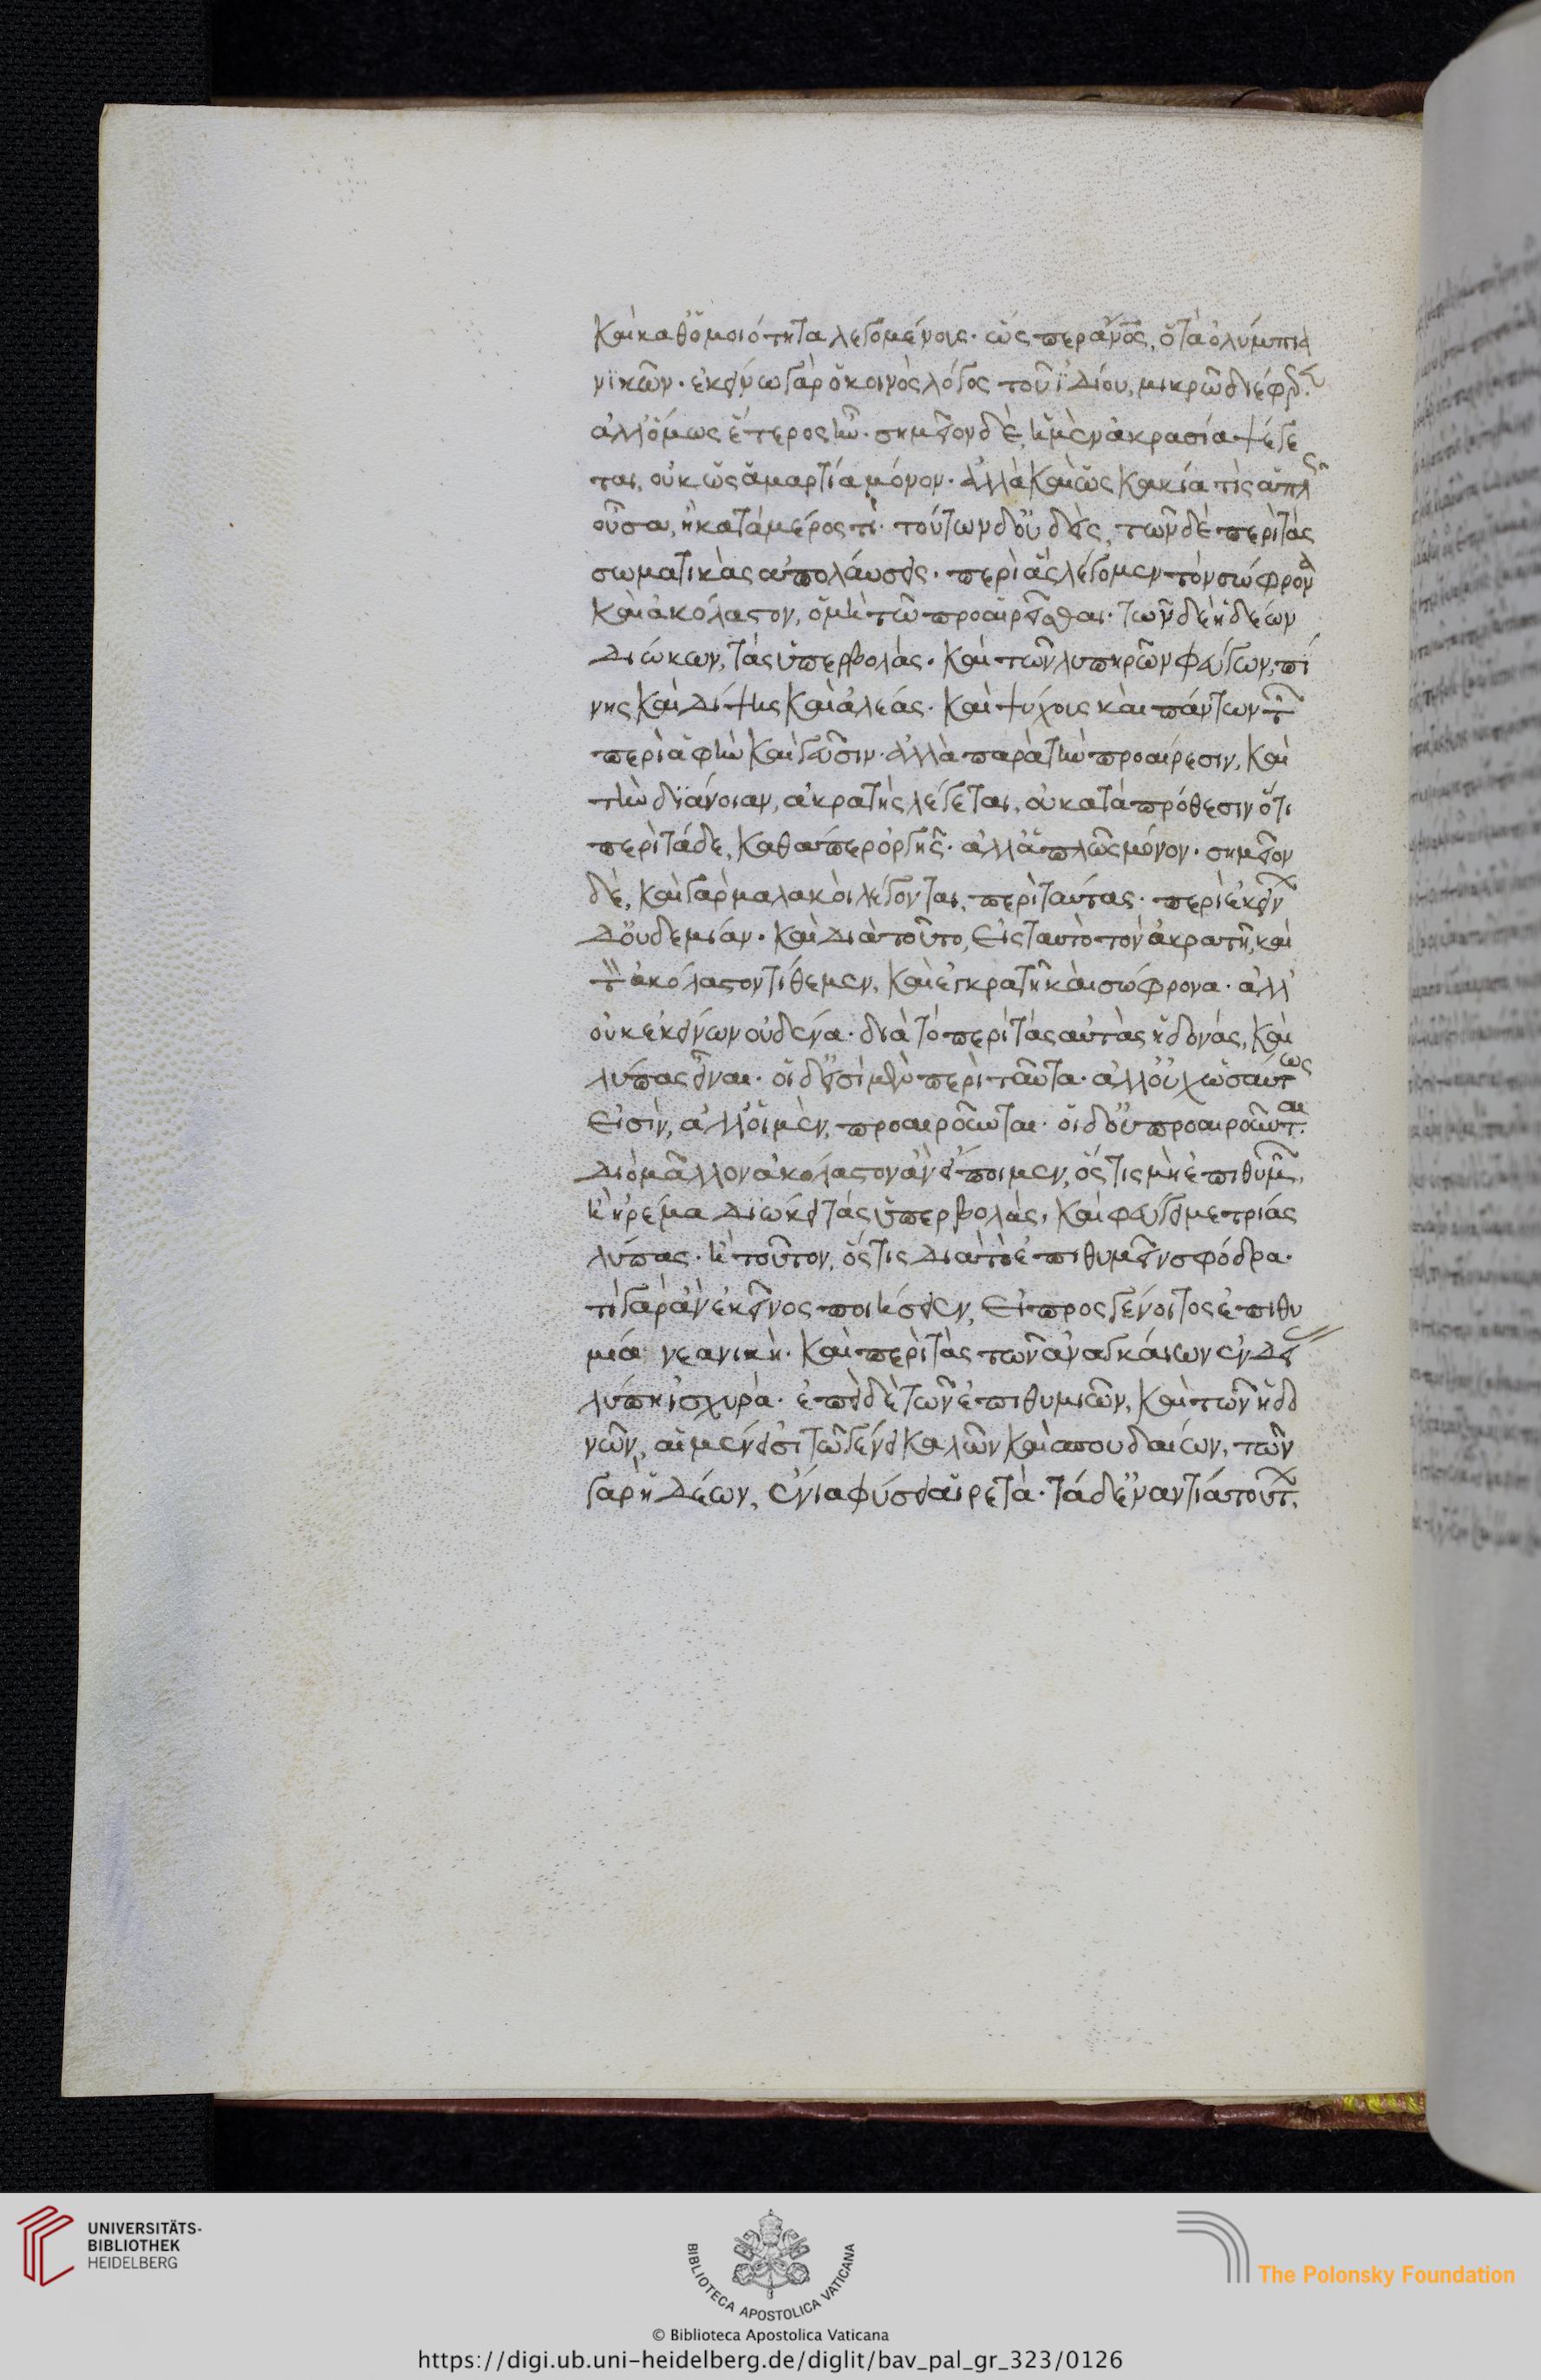 καὶ καθ' ὁμοιότητα λεγομένους. ὥσπερ ἄνος, ὁ τὰ ὀλύμπια
νϊκῶν. ἐκείνω γὰρ ὁ κοινὸς λόγος τοῦ ἰδίου, μικρῶ διέφερ
ἀλλ' ὅμως ἕτερος ἦν. σημεῖον δὲ, ἡ μὲν ἀκρασία ψέγε
ται, οὐκ ὡς ἁμαρτία μόνον. ἀλλὰ καὶ ὡς κακία τὶς ἁπλῶς
οὖσα, ἢ κατὰ μέρος τὶ. τούτων δ' οὐδεὶς, τῶν δὲ περὶ τὰς
σωματικὰς ἀπολαύσεις. περὶ ἃς λέγομεν τὸν σώφρονα
καὶ ἀκόλαστον, ὁ μὴ τῶ προαιρεῖσθαι. τῶν δὲ ἡδέων
διώκων, τὰς ὑπερβολὰς. καὶ τῶν λυπηρῶν φεύγων, πί
νης καὶ δίψης καὶ ἀλέας. καὶ ψύχους καὶ πάντων τῶν
περὶ ἁφὴν καὶ γεῦσιν. ἀλλὰ παρὰ τὴν προαίρεσιν, καὶ
τὴν διάνοιαν, ἀκρατὴς λέγεται, οὐ κατὰ πρόθεσιν ὅτι
περὶ τάδε, καθάπερ ὀργῆς. ἀλλ' ἁπλῶς μόνον. σημεῖον
δὲ, καὶ γὰρ μαλακοὶ λέγονται, περὶ ταύτας. περὶ ἐκείνων
δ' οὐδεμίαν. καὶ διὰ τοῦτο, εἰς ταυτὸ τὸν ἀκρατῆ, καὶ
τὸν ἀκόλαστον τίθεμεν, καὶ ἐγκρατῆ καὶ σώφρονα. ἀλλ'
οὐκ ἐκείνων οὐδένα. διὰ τὸ περὶ τὰς αὐτὰς ἡδονάς, καὶ
λύπας εἶναι. οἱ δ' εἰσὶ μὲν περὶ ταῦτα. ἀλλ' οὐχ ὡσαύτως
εἰσὶν, ἀλλ' οἱ μὲν, προαιροῦνται. οἱ δ' οὐ προαιροῦνται.
διὸ μᾶλλον ἀκόλαστον ἂν εἴποιμεν, ὅστις μὴ ἐπιθυμῶν,
ἢ ἠρέμα διώκει τὰς ὑπερβολὰς, καὶ φεύγει μετρίας
λύπας. ἢ τοῦτον, ὅστις διὰ τὸ ἐπιθυμεῖν σφόδρα.
τί γὰρ ἂν ἐκεῖνος ποιήσειεν, εἰ προσγένοιτο ἐπιθυ
μία νεανικὴ. καὶ περὶ τὰς τῶν ἀναγκαίων ἐνδεί
λύπη ἰσχυρὰ. ἐπεὶ δὲ τῶν ἐπιθυμιῶν, καὶ τῶν ἡδο
νῶν, αἱ μέν εἰσι τῶ γένει καλῶν καὶ σπουδαίων, τῶν
γὰρ ἡδέων, ἔνια φύσει αἱρετὰ. τὰ δ' ἐναντία τούτων.
UNIVERSITÄTS-
BIBLIOTHEK
HEIDELBERG
BIBLIOTECA APOSTOLICA VATICANA
The Polonsky Foundation
© Biblioteca Apostolica Vaticana
https://digi.ub.uni-heidelberg.de/diglit/bav_pal_gr_323/0126